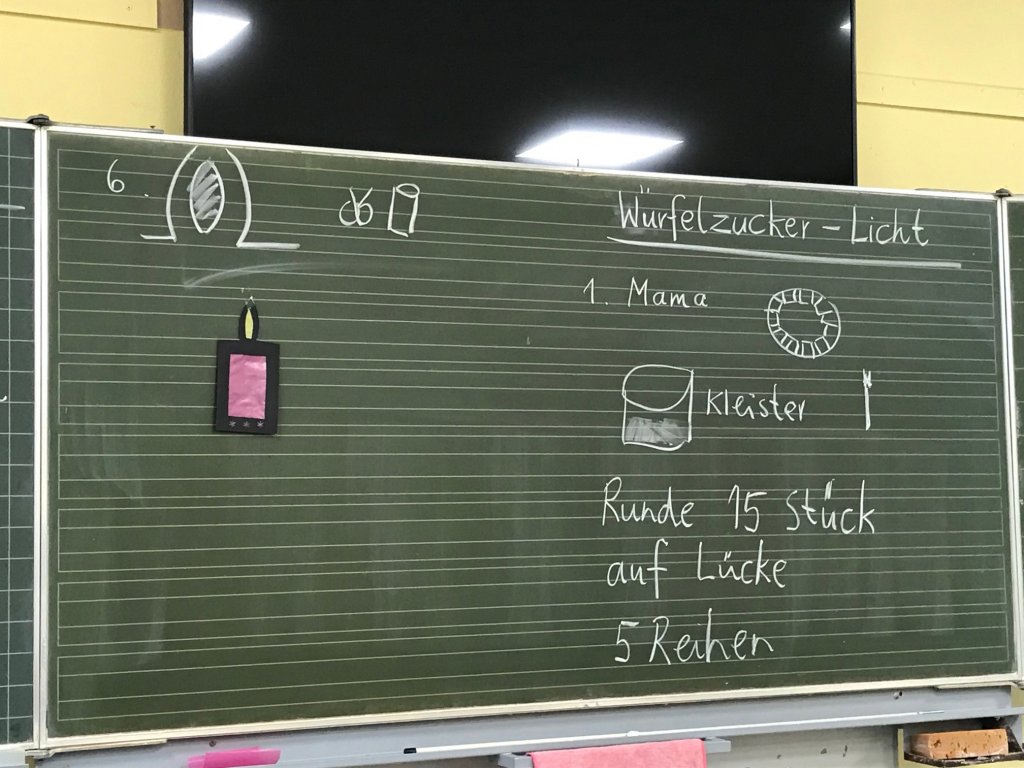 6.
Würfelzucker - Licht
1. Mama
Kleister
Runde 15 Stück
auf Lücke
5 Reihen